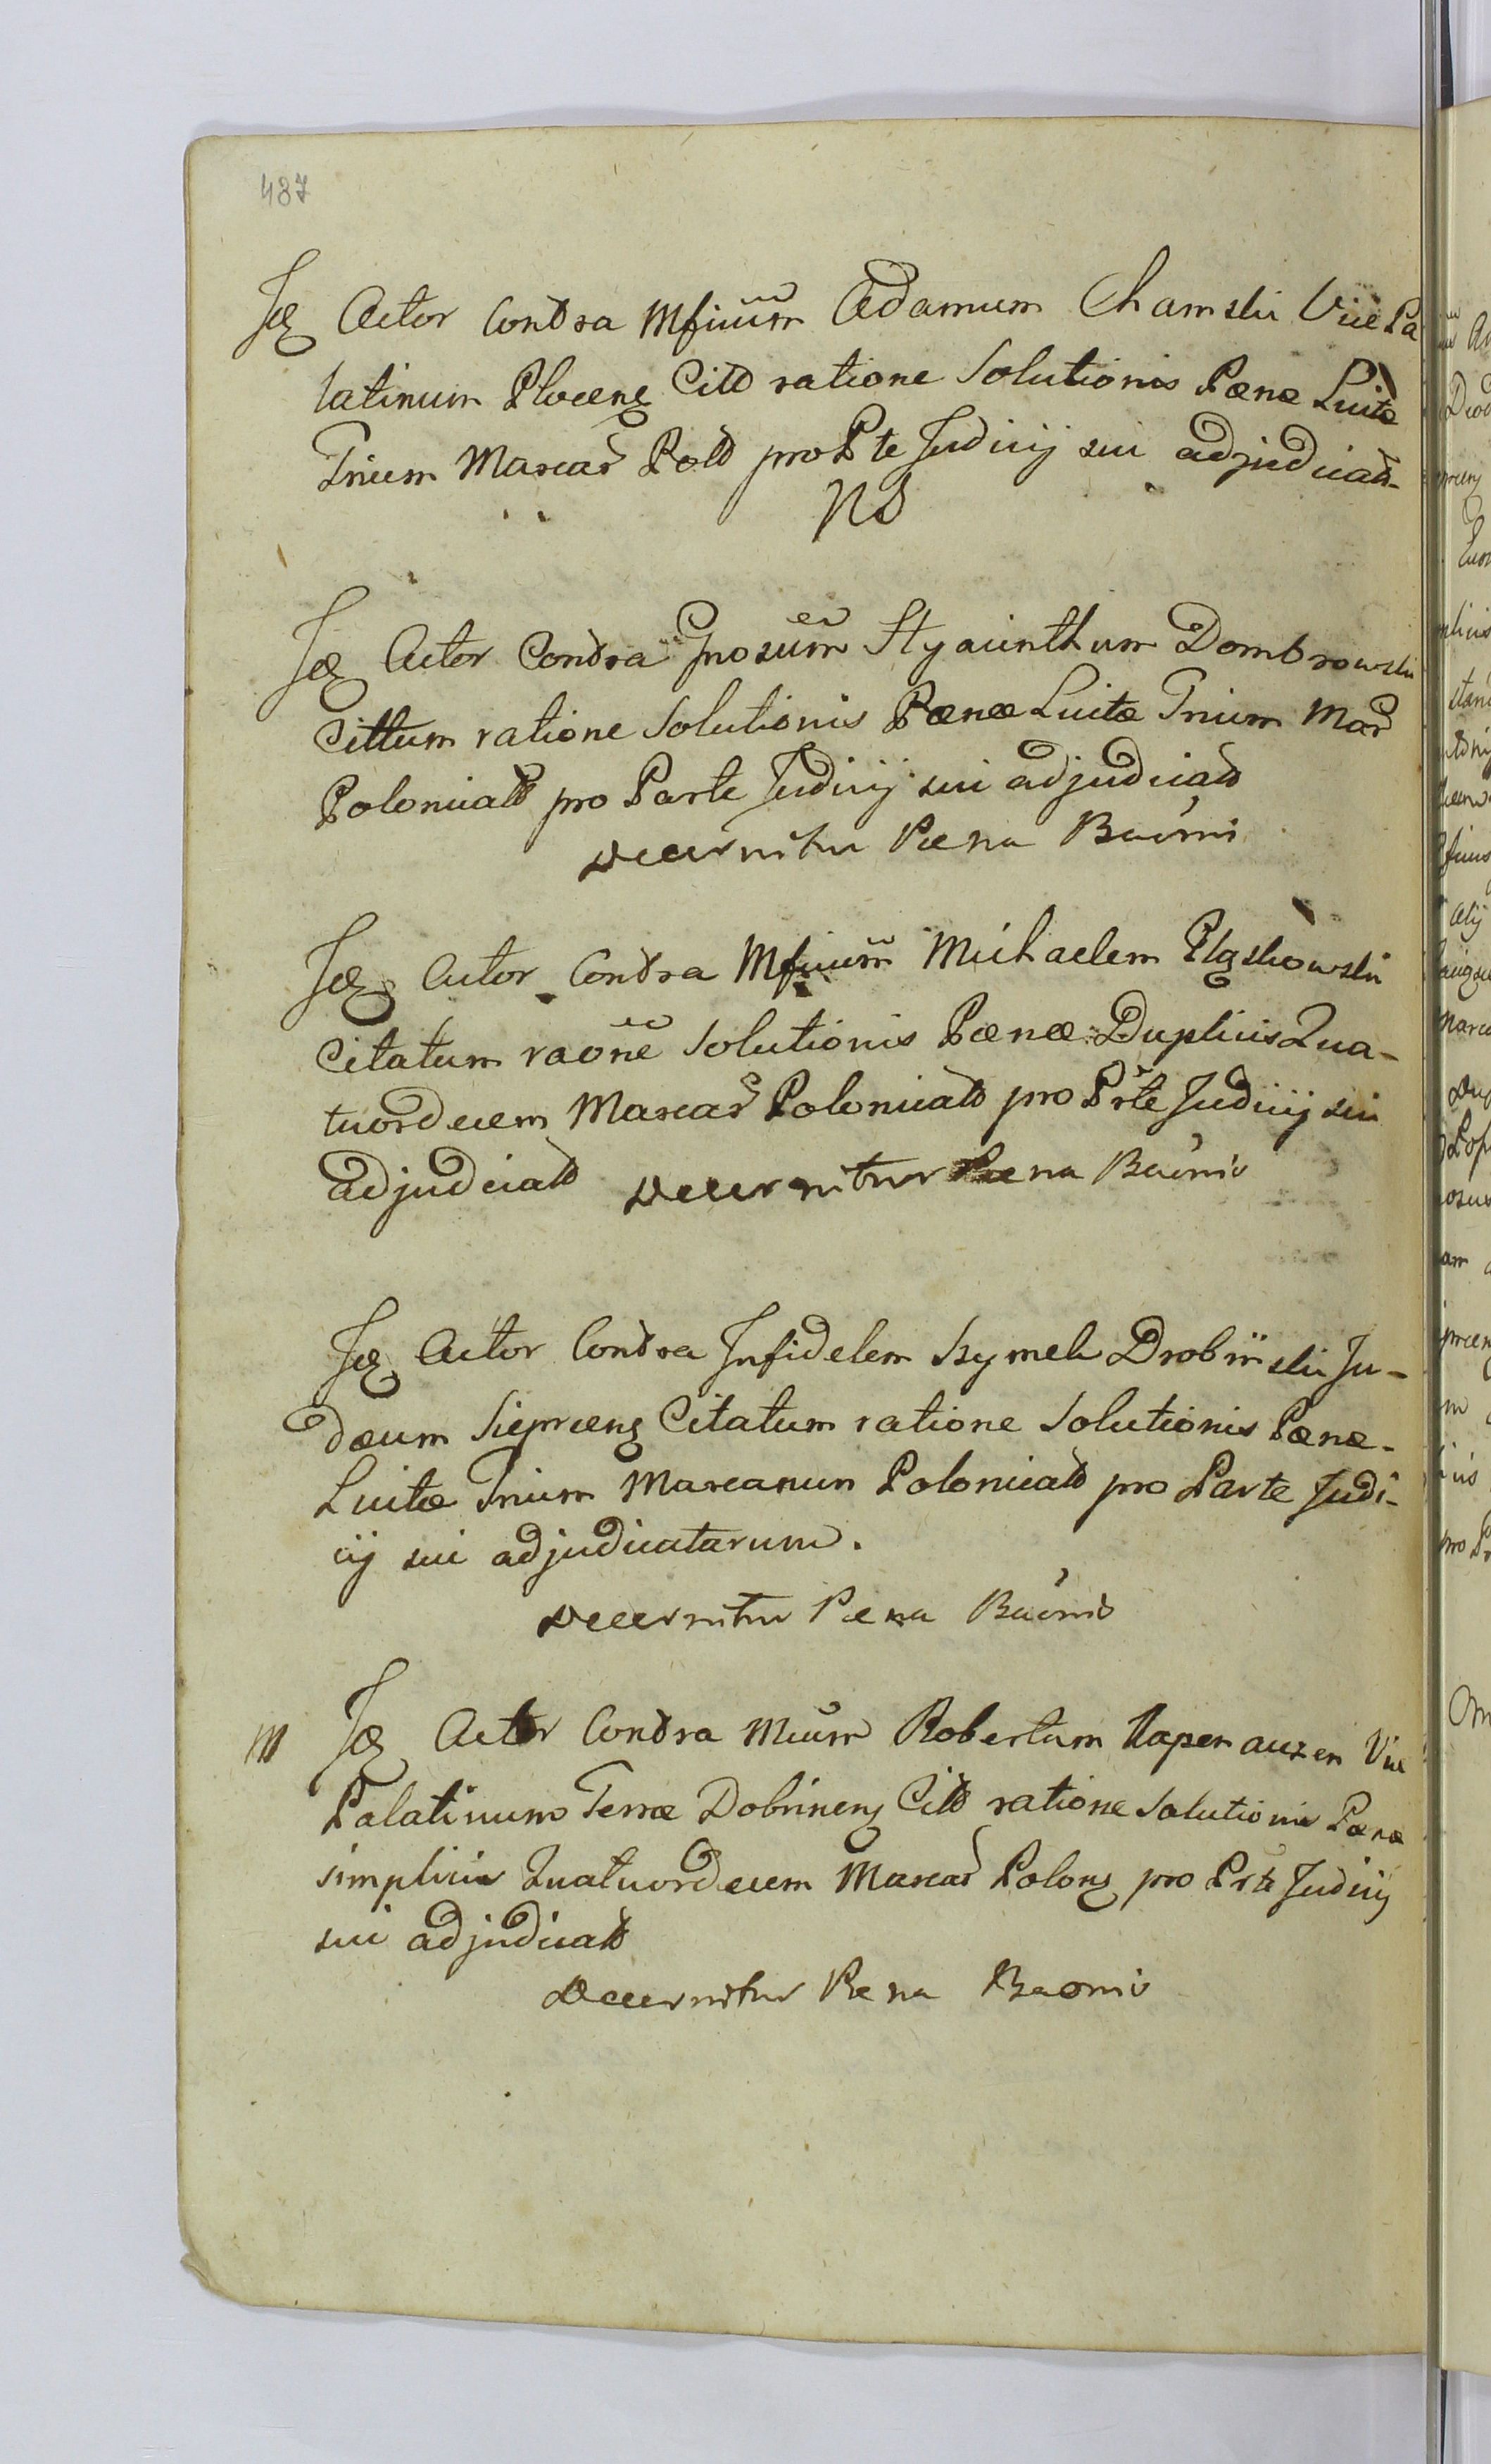 487
Idem Actor Contra Mficum Adamum Chamski Vice Pa
latinum Plocens Citt ratione Solutionis Pænæ Luitæ
Trium Marcar Polt pro Pte Judicij sui adjudicatt
NS
Idem Actor Contra Gnosum Hyacinthum Dombrowski
Cittum ratione Solutionis Pænæ Luitæ Trium Mar
Polonicatt pro Parte Judicij sui adjudicatt
Decernitur Pæna Baonis
Idem Actor Contra Mficum Michaelem Pląskowski
Citatum raõne Solutionis Pænæ Duplicis Qua-
tuordecem Marcar Polonicatt pro Prte Judicij sui
adjudicatt Decernitur Pæna Baonis
Idem Actor Contra Infidelem Szymek Drobiński Ju-
dæum Sieprcens Citatum ratione Solutionis Pænæ-
Luitæ Trium Marcarum Polonicatt pro Parte Judi-
cij sui adjudicatarum.
Decernitur Pæna Baonis
M Idem Actor Contra Mcum Robertum Hapenauzen Vice
Palatinum Terræ Dobrinens Citt ratione Solutionis Pænæ
simplicis Quatuordecem Marcar Polons pro Prte Judicij
sui adjudicatt
Decernitur Pæna Baonis